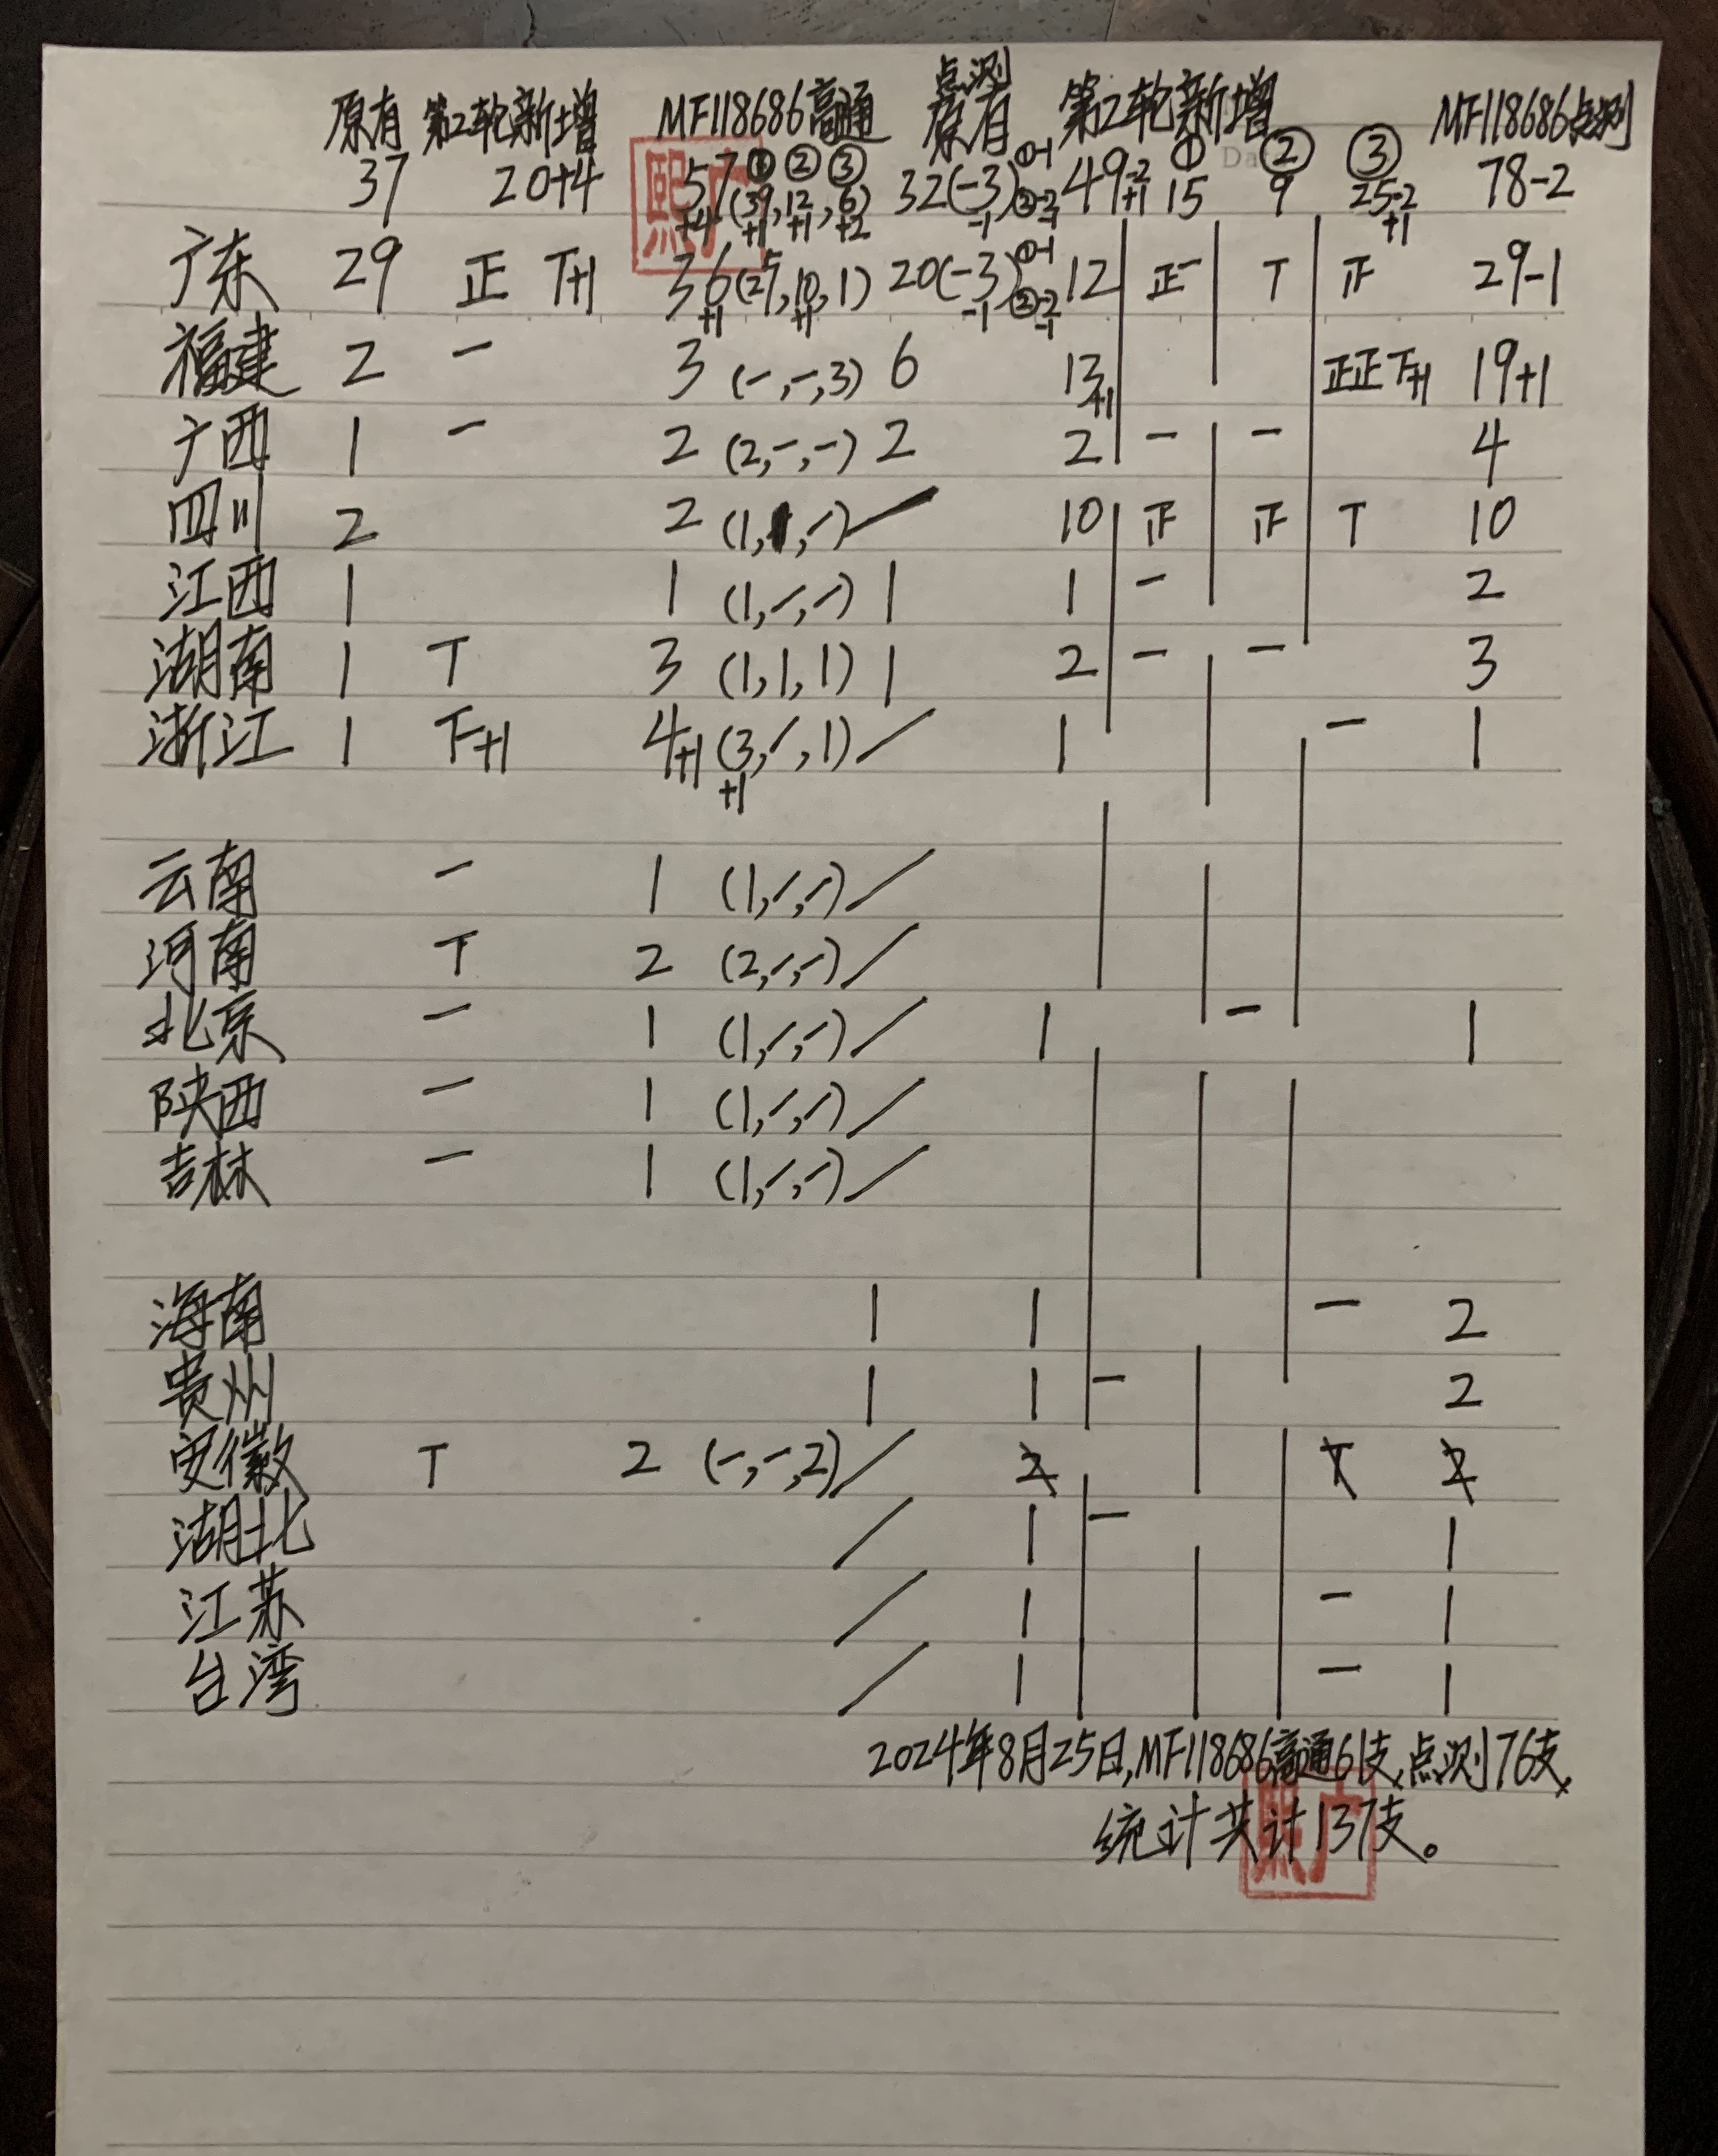 原有 第2轮新增 MF118686高通 点测原有 第2轮新增 ① ② ③ MF118686点测
37 20+4 57+4 ①②③ (39+1,12+1,6+2) 32(-3)-1 ①-1 ②-2-1 49-2+1 15 9 25-2+1 78-2
广东 29 正 T+1 36+1 (25,10+1,1) 20(-3)-1 ①-1 ②-2-1 12 正一 T 下 29-1
福建 2 一 3 (-,-,3) 6 13+1 正正下+1 19+1
广西 1 一 2 (2,-,-) 2 2 一 一 4
四川 2 2 (1,1,-) / 10 正 正 T 10
江西 1 1 (1,-,-) 1 1 一 2
湖南 1 T 3 (1,1,1) 1 2 一 一 3
浙江 1 下+1 4+1 (3+1,-,1) / 1 一 1
云南 一 1 (1,-,-) /
河南 T 2 (2,-,-) /
北京 一 1 (1,-,-) / 1 一 1
陕西 一 1 (1,-,-) /
吉林 一 1 (1,-,-) /
海南 1 1 一 2
贵州 1 1 一 2
安徽 T 2 (-,-,2) / 2 T 2
湖北 / 1 一 1
江苏 / 1 一 1
台湾 / 1 一 1
2024年8月25日,MF118686高通61支,点测76支,
统计共计137支。